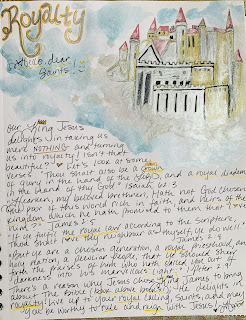 Royalty
Hello, dear
Saints!
Our King Jesus
delights in taking us
mere NOTHING and turning
us into royalty! Isn't that
beautiful? Let's look at some
verses. "Thou shalt also be a crown
of glory in the hand of the LORD, and a royal diadem
in the hand of thy God." Isaiah 62:3
"Hearken, my beloved brethren, Hath not God chosen
the poor of this world rich in faith, and heirs of the
kingdom which he hath promised to them that love
him?" James 2:5
"If ye fulfil the royal law according to the scripture,
Thou shalt love thy neighbour as thyself, ye do well:"
James 2:8
"But ye are a chosen generation, a royal priesthood, an
holy nation, a peculiar people; that ye should shew
forth the praises of him who hath called you out of
darkness into his marvellous light:" 1 Peter 2:9
There's a reason why Jesus chose King James to bring
about The Bible
royalty! Live up to your royal calling, Saints, and may
you be worthy to rule and reign with Jesus.